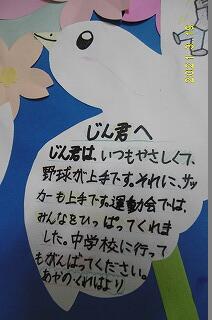 じん君へ
じん君は、いつもやさしくて、
野球が上手です。それに、サッ
カーも上手です。運動会では、
みんなをひっぱってくれま
した。中学校に行って
もがんばってください。
あやのくれはより
2021.3.15